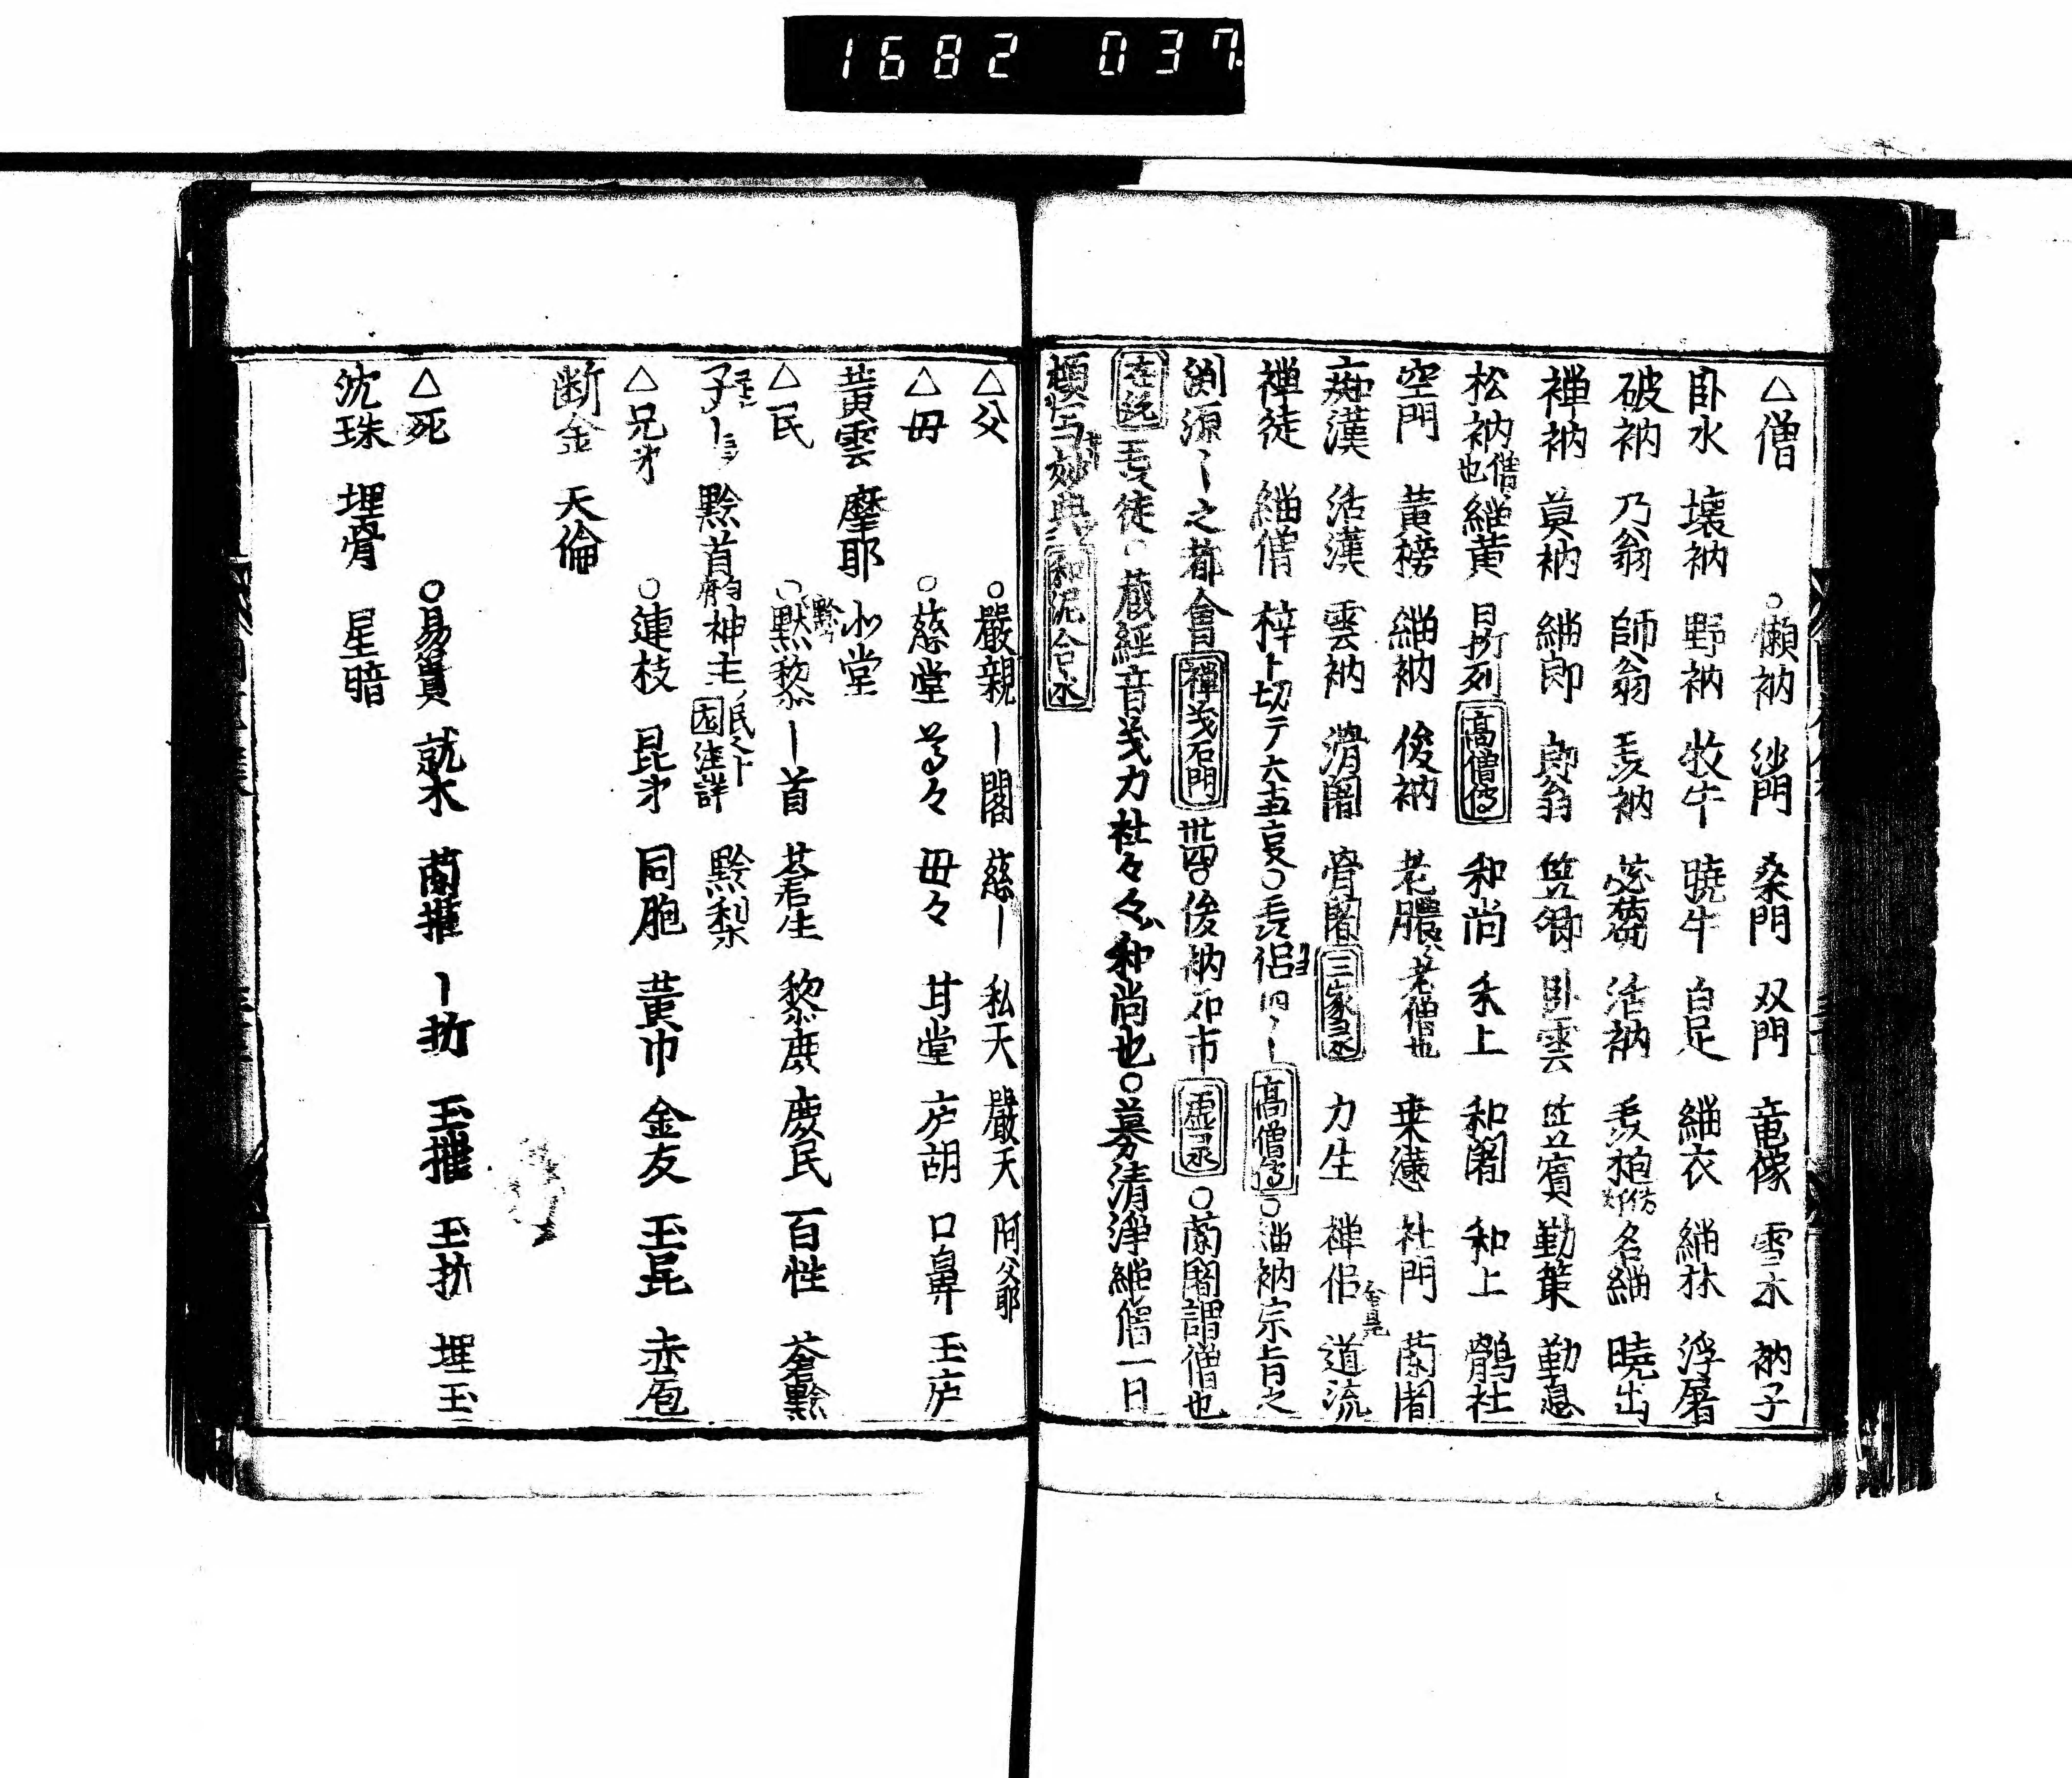 1682 037
△僧 ○懶衲 沙門 桑門 双門 竜像 雪水 衲子
臥水 壊衲 野衲 牧牛 暁牛 白足 緇衣 緇林 浮屠
破衲 乃翁 師翁 衲 苾蒭 活衲 名緇 暁出
禅衲 莫衲 緇郎 郎翁 竺卿 臥雲 竺賓 勤策 勤息
松衲僧也 緇黄 高僧傳 和尚 禾上 和闍 和上 鶻社
空門 黄榜 緇衲 俊衲 老膿老僧也 社門 蘭闍
痴漢 活漢 雲衲 滑闍 骨闍 三家 力生 禅侶 道流
禅徒 緇僧 梓 高僧傳 ○緇衲宗旨之
渕源 之都會 禅 石門 ○俊衲 市 ○蘭闍謂僧也
徒○蔵経音 力社 和尚也○募清浄緇僧一日
頓写妙典 和泥合水
△父 ○嚴親 ー閣 慈ー 私天 嚴天 阿父耶
△毋 ○慈堂 尊々 毋々 甘堂 庐胡 口鼻 玉庐
黄雲 摩耶 小堂
△民 ○黙黎 ー首 蒼生 黎庶 慶民 百性 蒼黔
子ー 黔首 神主 民 注詳 黔梨
△兄弟 ○連枝 昆弟 同胞 黄巾 金友 玉昆
断金 天倫
△死 ○易簀 就木 蘭摧 ー折 玉摧 玉折 埋玉
沈珠 埋骨 星暗